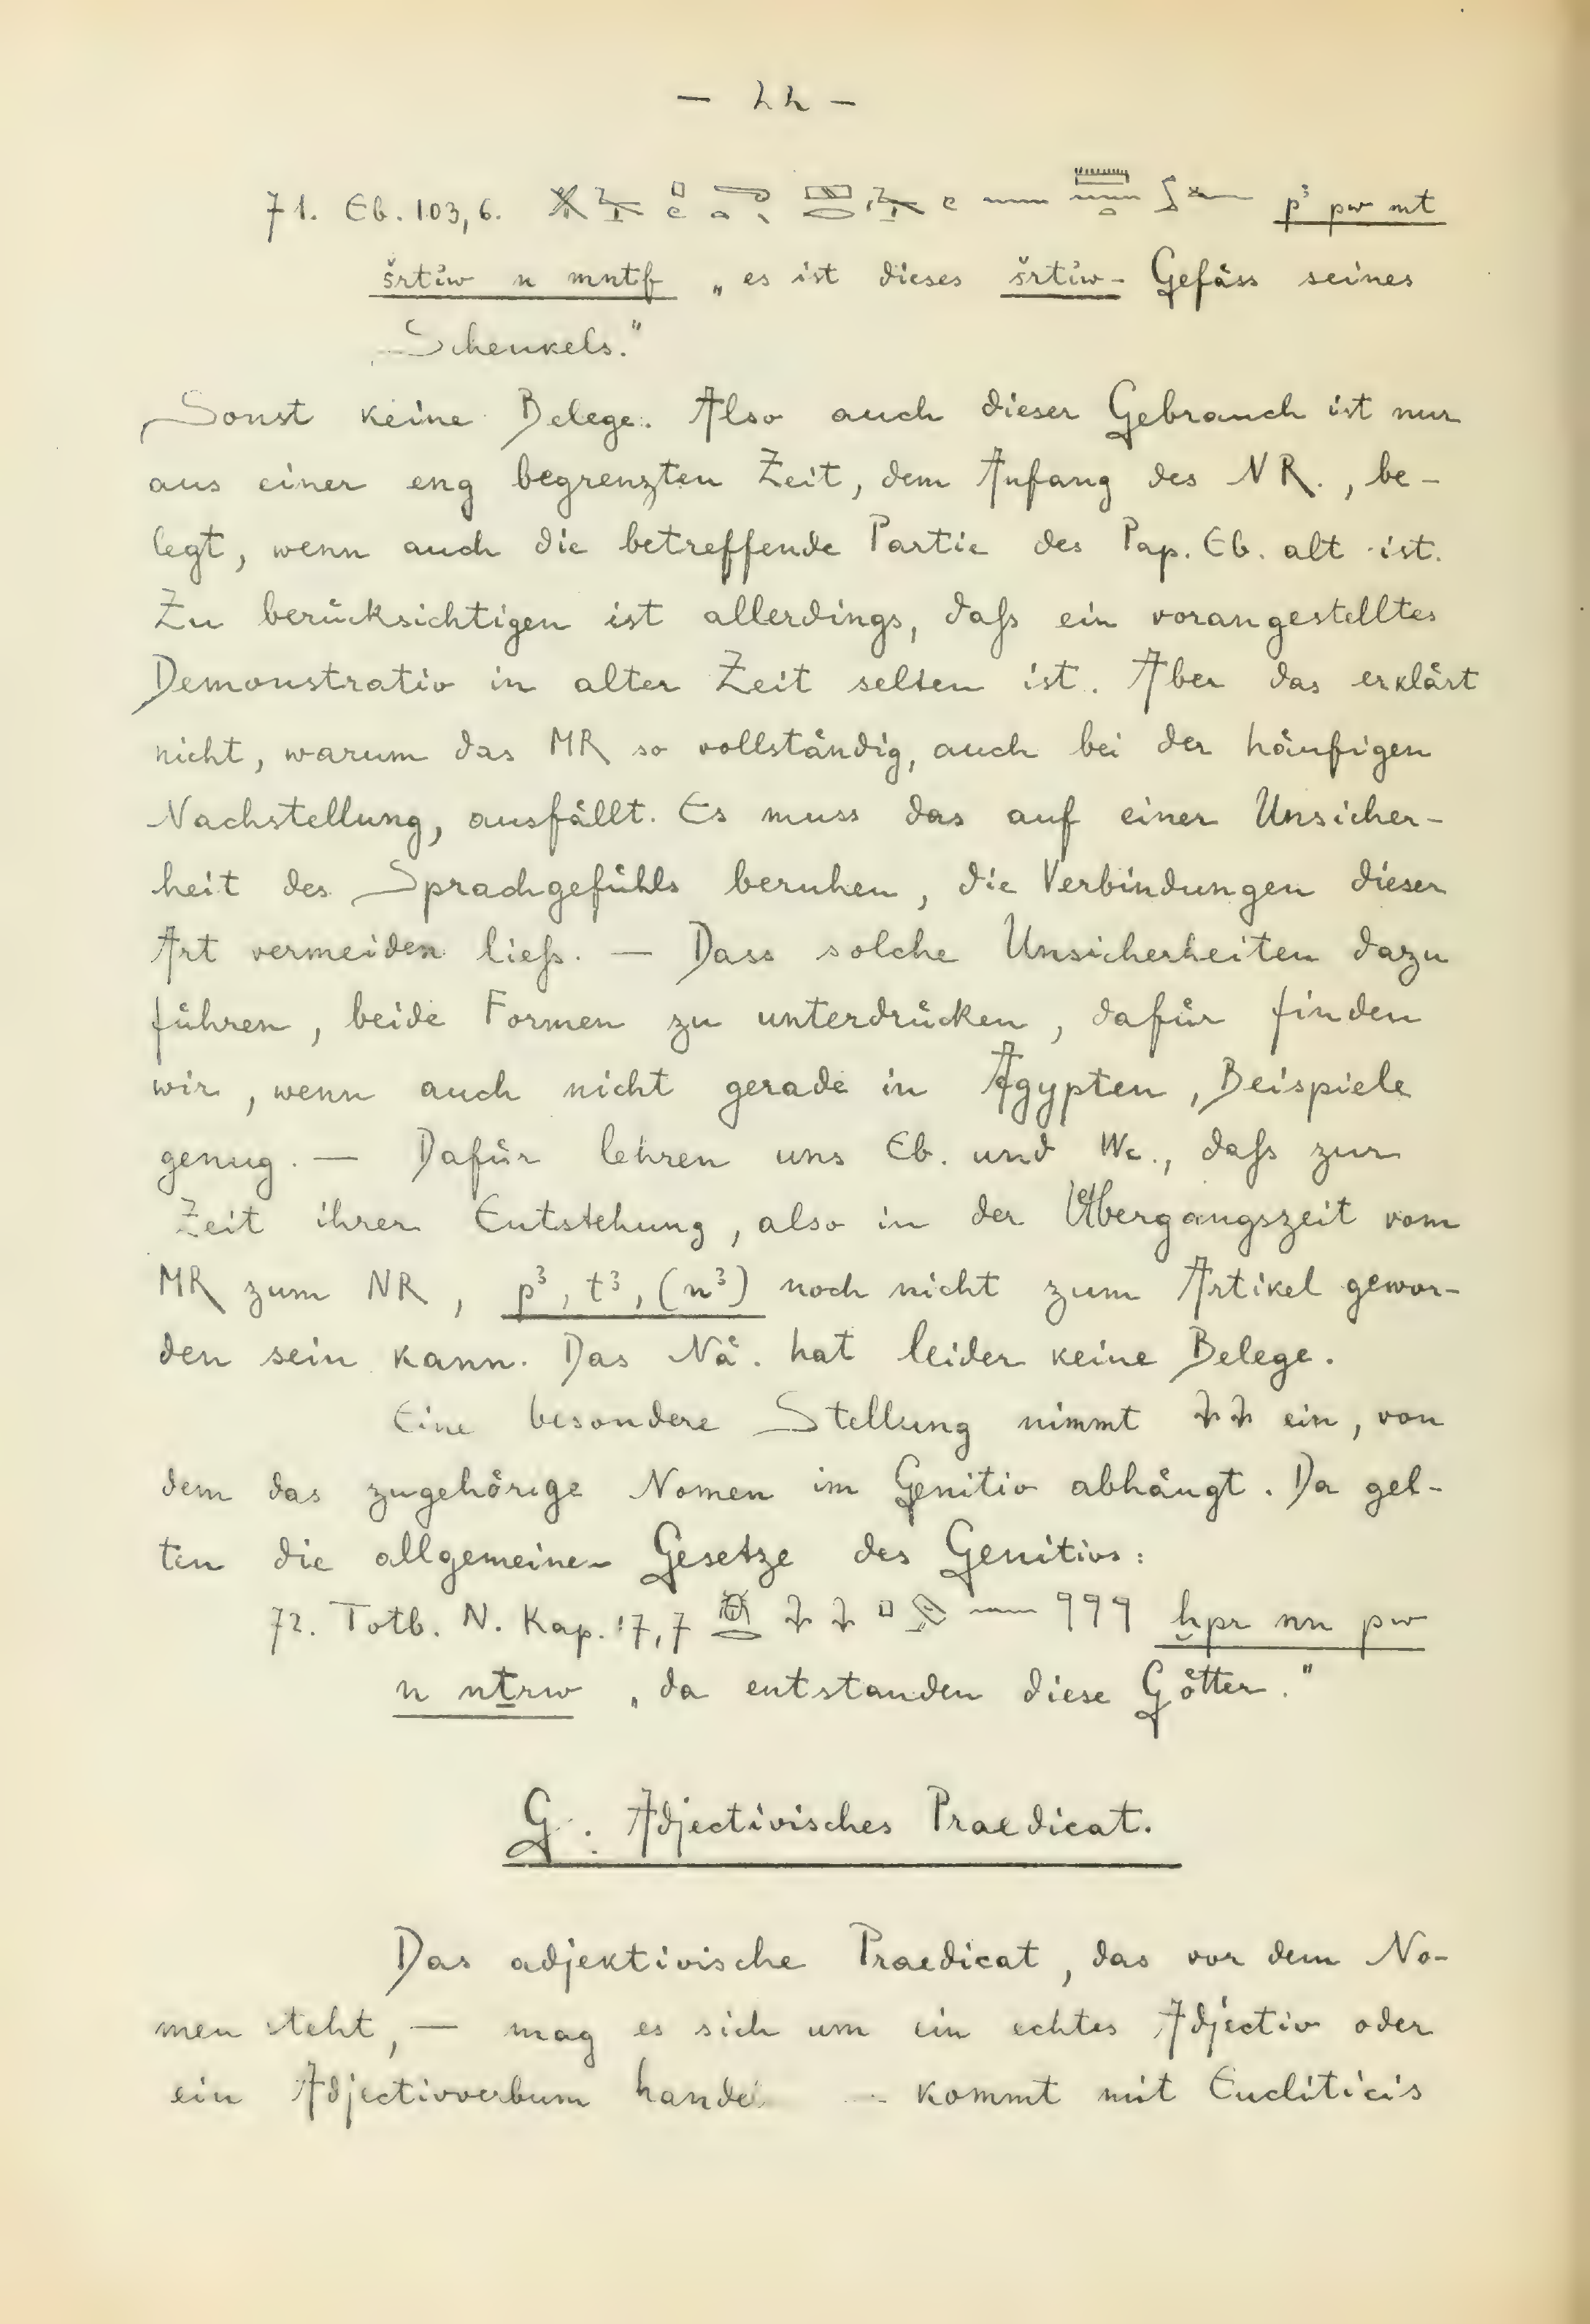 — 22 —
71. Eb. 103,6. p³ pw mt
šrtỉw n mntf „es ist dieses šrtỉw-Gefäss seines
Schenkels."
Sonst keine Belege. Also auch dieser Gebrauch ist nur
aus einer eng begrenzten Zeit, dem Anfang des NR., be-
legt, wenn auch die betreffende Partie des Pap. Eb. alt ist.
Zu berücksichtigen ist allerdings, daſs ein vorangestelltes
Demonstrativ in alter Zeit selten ist. Aber das erklärt
nicht, warum das MR so vollständig, auch bei der häufigen
Nachstellung, ausfällt. Es muss das auf einer Unsicher-
heit des Sprachgefühls beruhen, die Verbindungen dieser
Art vermeiden lieſs. — Dass solche Unsicherheiten dazu
führen, beide Formen zu unterdrücken, dafür finden
wir, wenn auch nicht gerade in Ägypten, Beispiele
genug. — Dafür lehren uns Eb. und We., daſs zur
Zeit ihrer Entstehung, also in der Übergangszeit vom
MR zum NR, p³, t³, (n³) noch nicht zum Artikel gewor-
den sein kann. Das Nä. hat leider keine Belege.
Eine besondere Stellung nimmt 𓇓𓇓 ein, von
dem das zugehörige Nomen im Genitiv abhängt. Da gel-
ten die allgemeinen Gesetze des Genitivs:
72. Totb. N. Kap. 17,7 ḫpr nn pw
n nṯrw „da entstanden diese Götter."
G. Adjectivisches Praedicat.
Das adjektivische Praedicat, das vor dem No-
men steht, — mag es sich um ein echtes Adjectiv oder
ein Adjectivverbum handel — kommt mit Encliticis